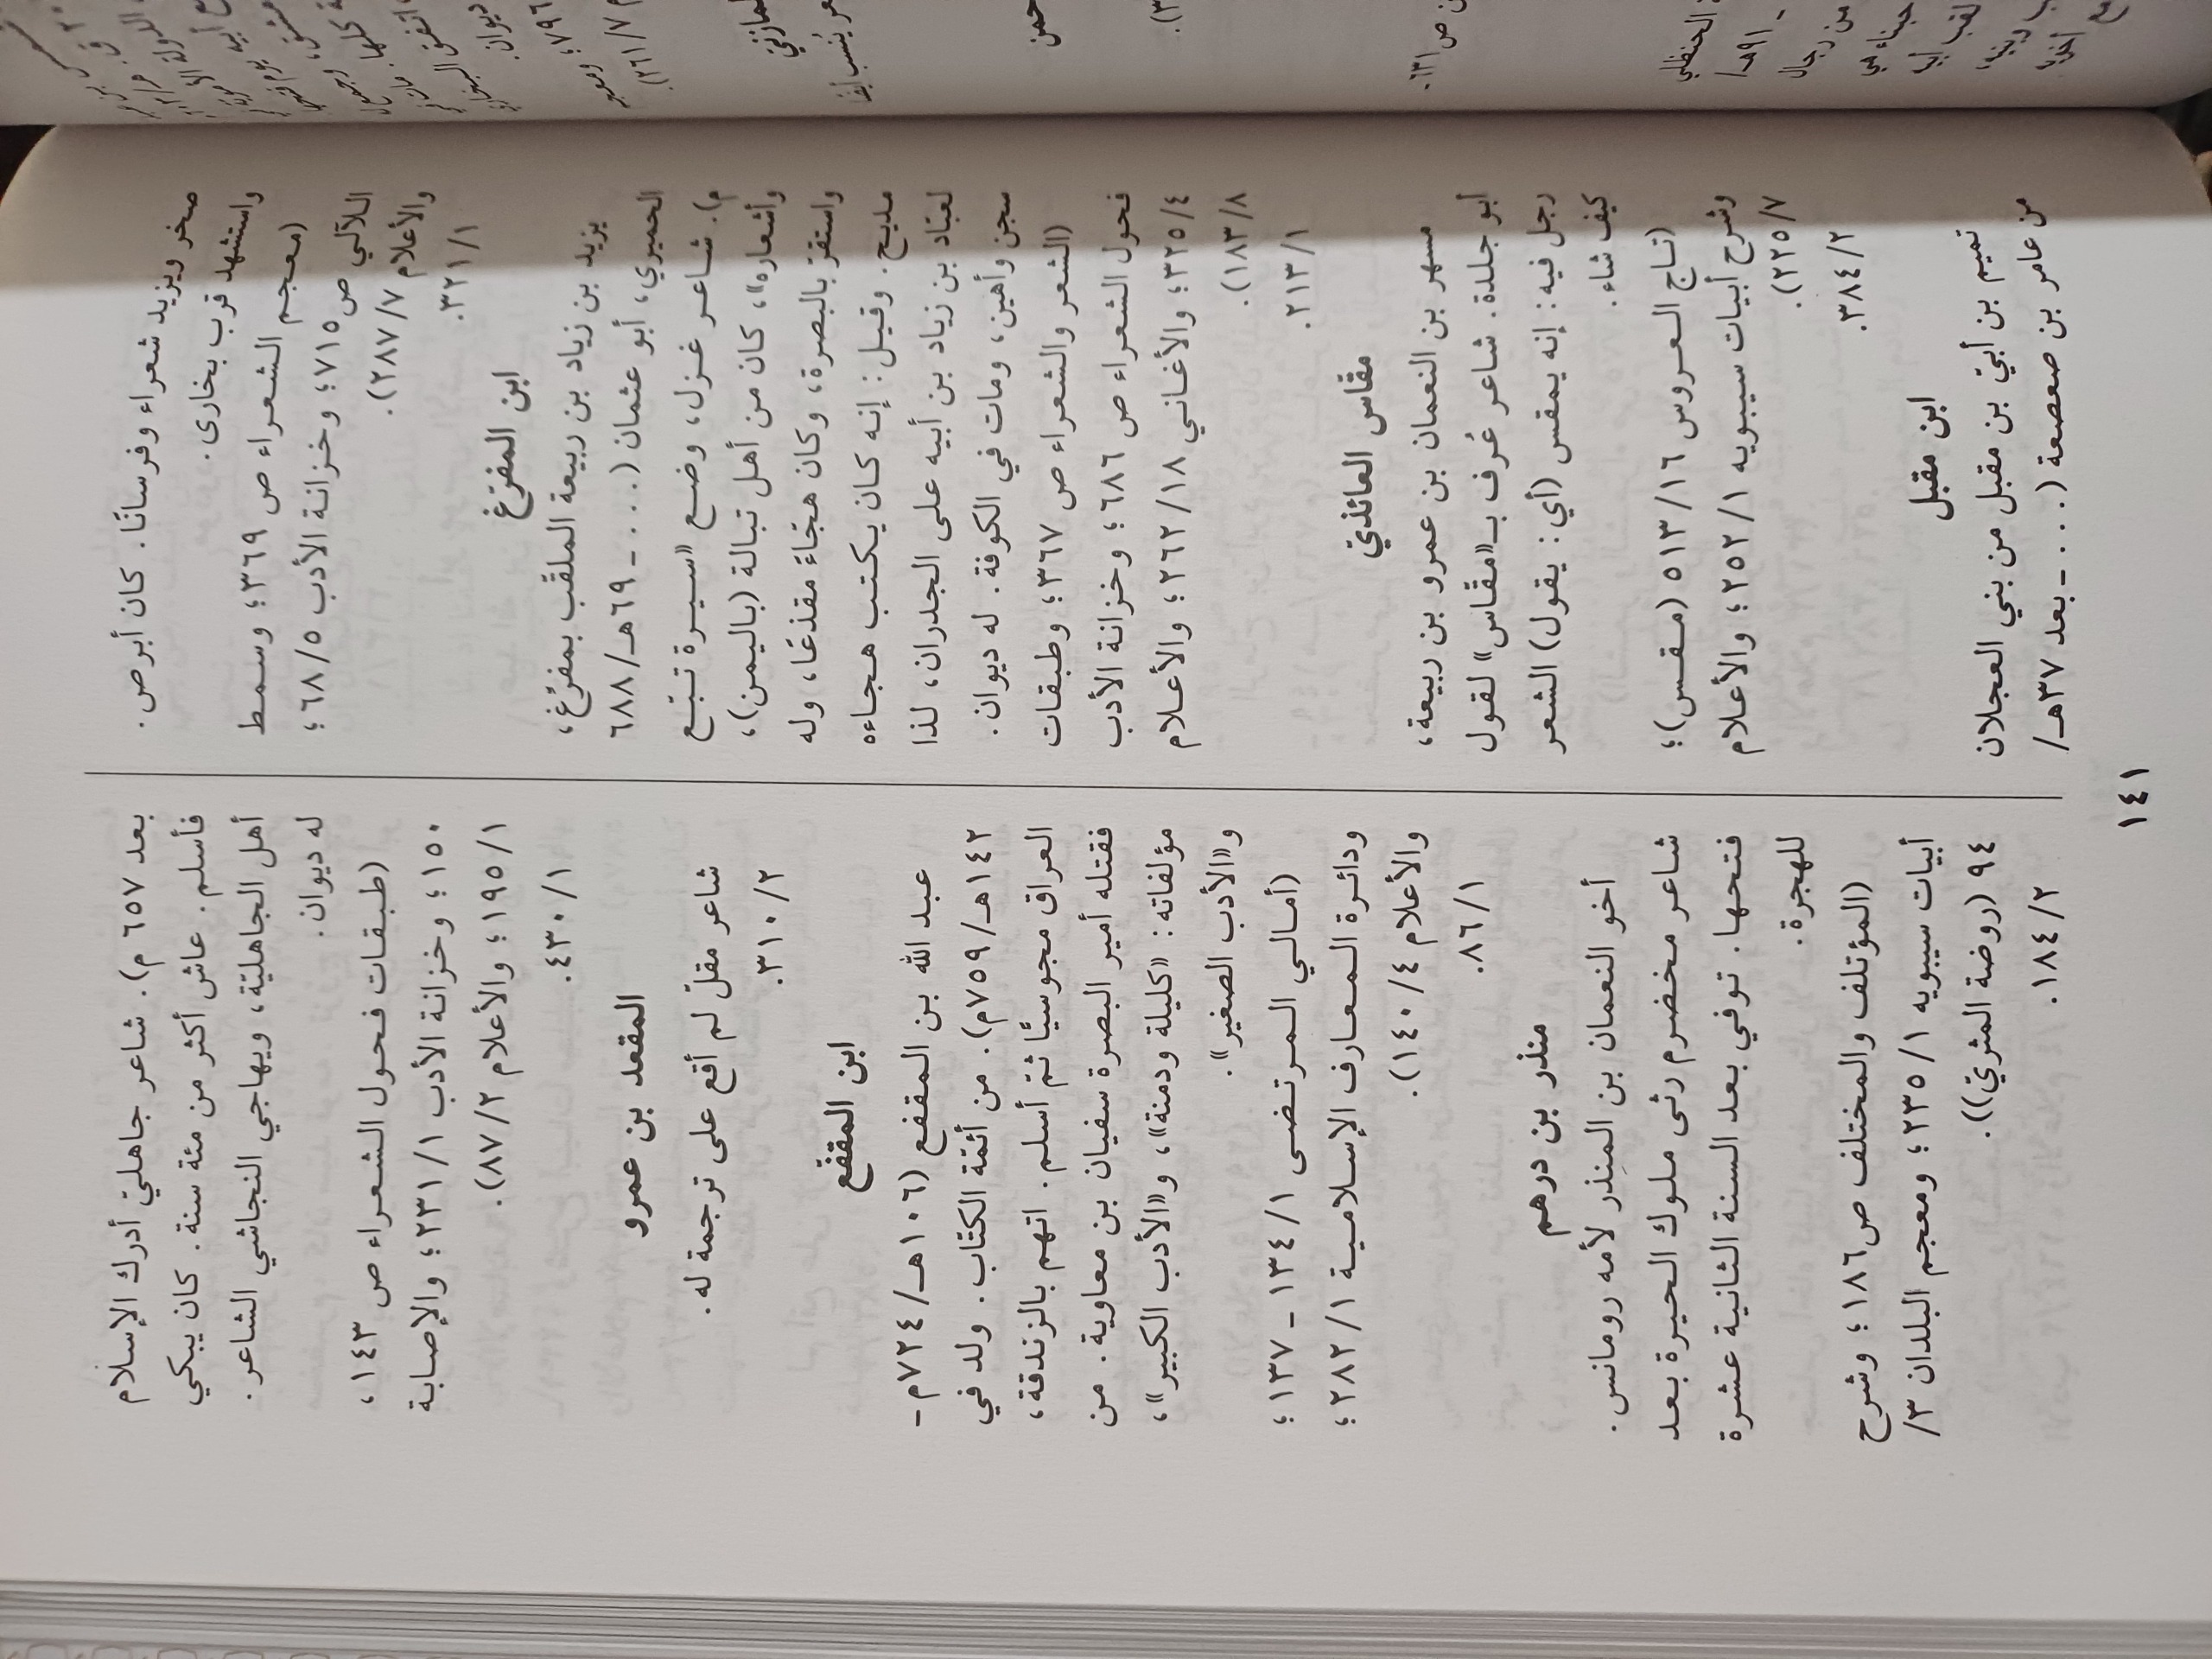 صخر ويزيد شعراء وفرسانًا. كان أبرص.
واستشهد قرب بخارى.
(معجم الشعراء ص ٣٦٩؛ وسمط
اللآلي ص ٧١٥؛ وخزانة الأدب ٦٨/٥؛
والأعلام ٢٨٧/٧).
٣٢١/١.
ابن المفرّغ
يزيد بن زياد بن ربيعة الملقّب بمفرّغ،
الحميري، أبو عثمان (... - ٦٩هـ/٦٨٨
م). شاعر غزل، وضع «سيرة تبّع
وأشعاره»، كان من أهل تبالة (باليمن)،
واستقرّ بالبصرة، وكان هجّاءً مقذعًا، وله
مديح. وقيل: إنه كان يكتب هجاءه
لعبّاد بن زياد بن أبيه على الجدران، لذا
سجن وأهين، ومات في الكوفة. له ديوان.
(الشعر والشعراء ص ٣٦٧؛ وطبقات
فحول الشعراء ص ٦٨٦؛ وخزانة الأدب
٣٢٥/٤؛ والأغاني ٢٦٢/١٨؛ والأعلام
١٨٣/٨).
٢١٣/١.
مقّاس العائذيّ
مسهر بن النعمان بن عمرو بن ربيعة،
أبو جلدة. شاعر عُرف بـ«مقّاس» لقول
رجل فيه: إنه يمقس (أي: يقول) الشعر
كيف شاء.
(تاج العروس ٥١٣/١٦ (مقس)؛
وشرح أبيات سيبويه ٢٥٢/١؛ والأعلام
٢٢٥/٧).
٣٨٤/٢.
ابن مقبل
تميم بن أبيّ بن مقبل من بني العجلان
من عامر بن صعصعة (... - بعد ٣٧هـ/
بعد ٦٥٧م). شاعر جاهليّ أدرك الإسلام
فأسلم. عاش أكثر من مئة سنة. كان يبكي
أهل الجاهليّة، ويهاجي النجاشي الشاعر.
له ديوان.
(طبقات فحول الشعراء ص ١٤٣،
١٥٠؛ وخزانة الأدب ٢٣١/١؛ والإصابة
١٩٥/١؛ والأعلام ٨٧/٢).
٤٣٠/١.
المقعد بن عمرو
شاعر مقلّ لم أقع على ترجمة له.
٣١٠/٢.
ابن المقفّع
عبد الله بن المقفع (١٠٦هـ/٧٢٤م -
١٤٢هـ/٧٥٩م). من أئمّة الكتّاب. ولد في
العراق مجوسيًّا ثمّ أسلم. اتهم بالزندقة،
فقتله أمير البصرة سفيان بن معاوية. من
مؤلفاته: «كليلة ودمنة»، و«الأدب الكبير»،
و«الأدب الصغير».
(أمالي المرتضى ١٣٤/١ - ١٣٧؛
ودائرة المعارف الإسلامية ٢٨٢/١؛
والأعلام ١٤٠/٤).
٨٦/١.
منذر بن درهم
أخو النعمان بن المنذر لأمه رومانس.
شاعر مخضرم رثى ملوك الحيرة بعد
فتحها. توفي بعد السنة الثانية عشرة
للهجرة.
(المؤتلف والمختلف ص١٨٦؛ وشرح
أبيات سيبويه ٢٣٥/١؛ ومعجم البلدان ٣/
٩٤ (روضة المثريّ)).
١٨٤/٢.
١٤١